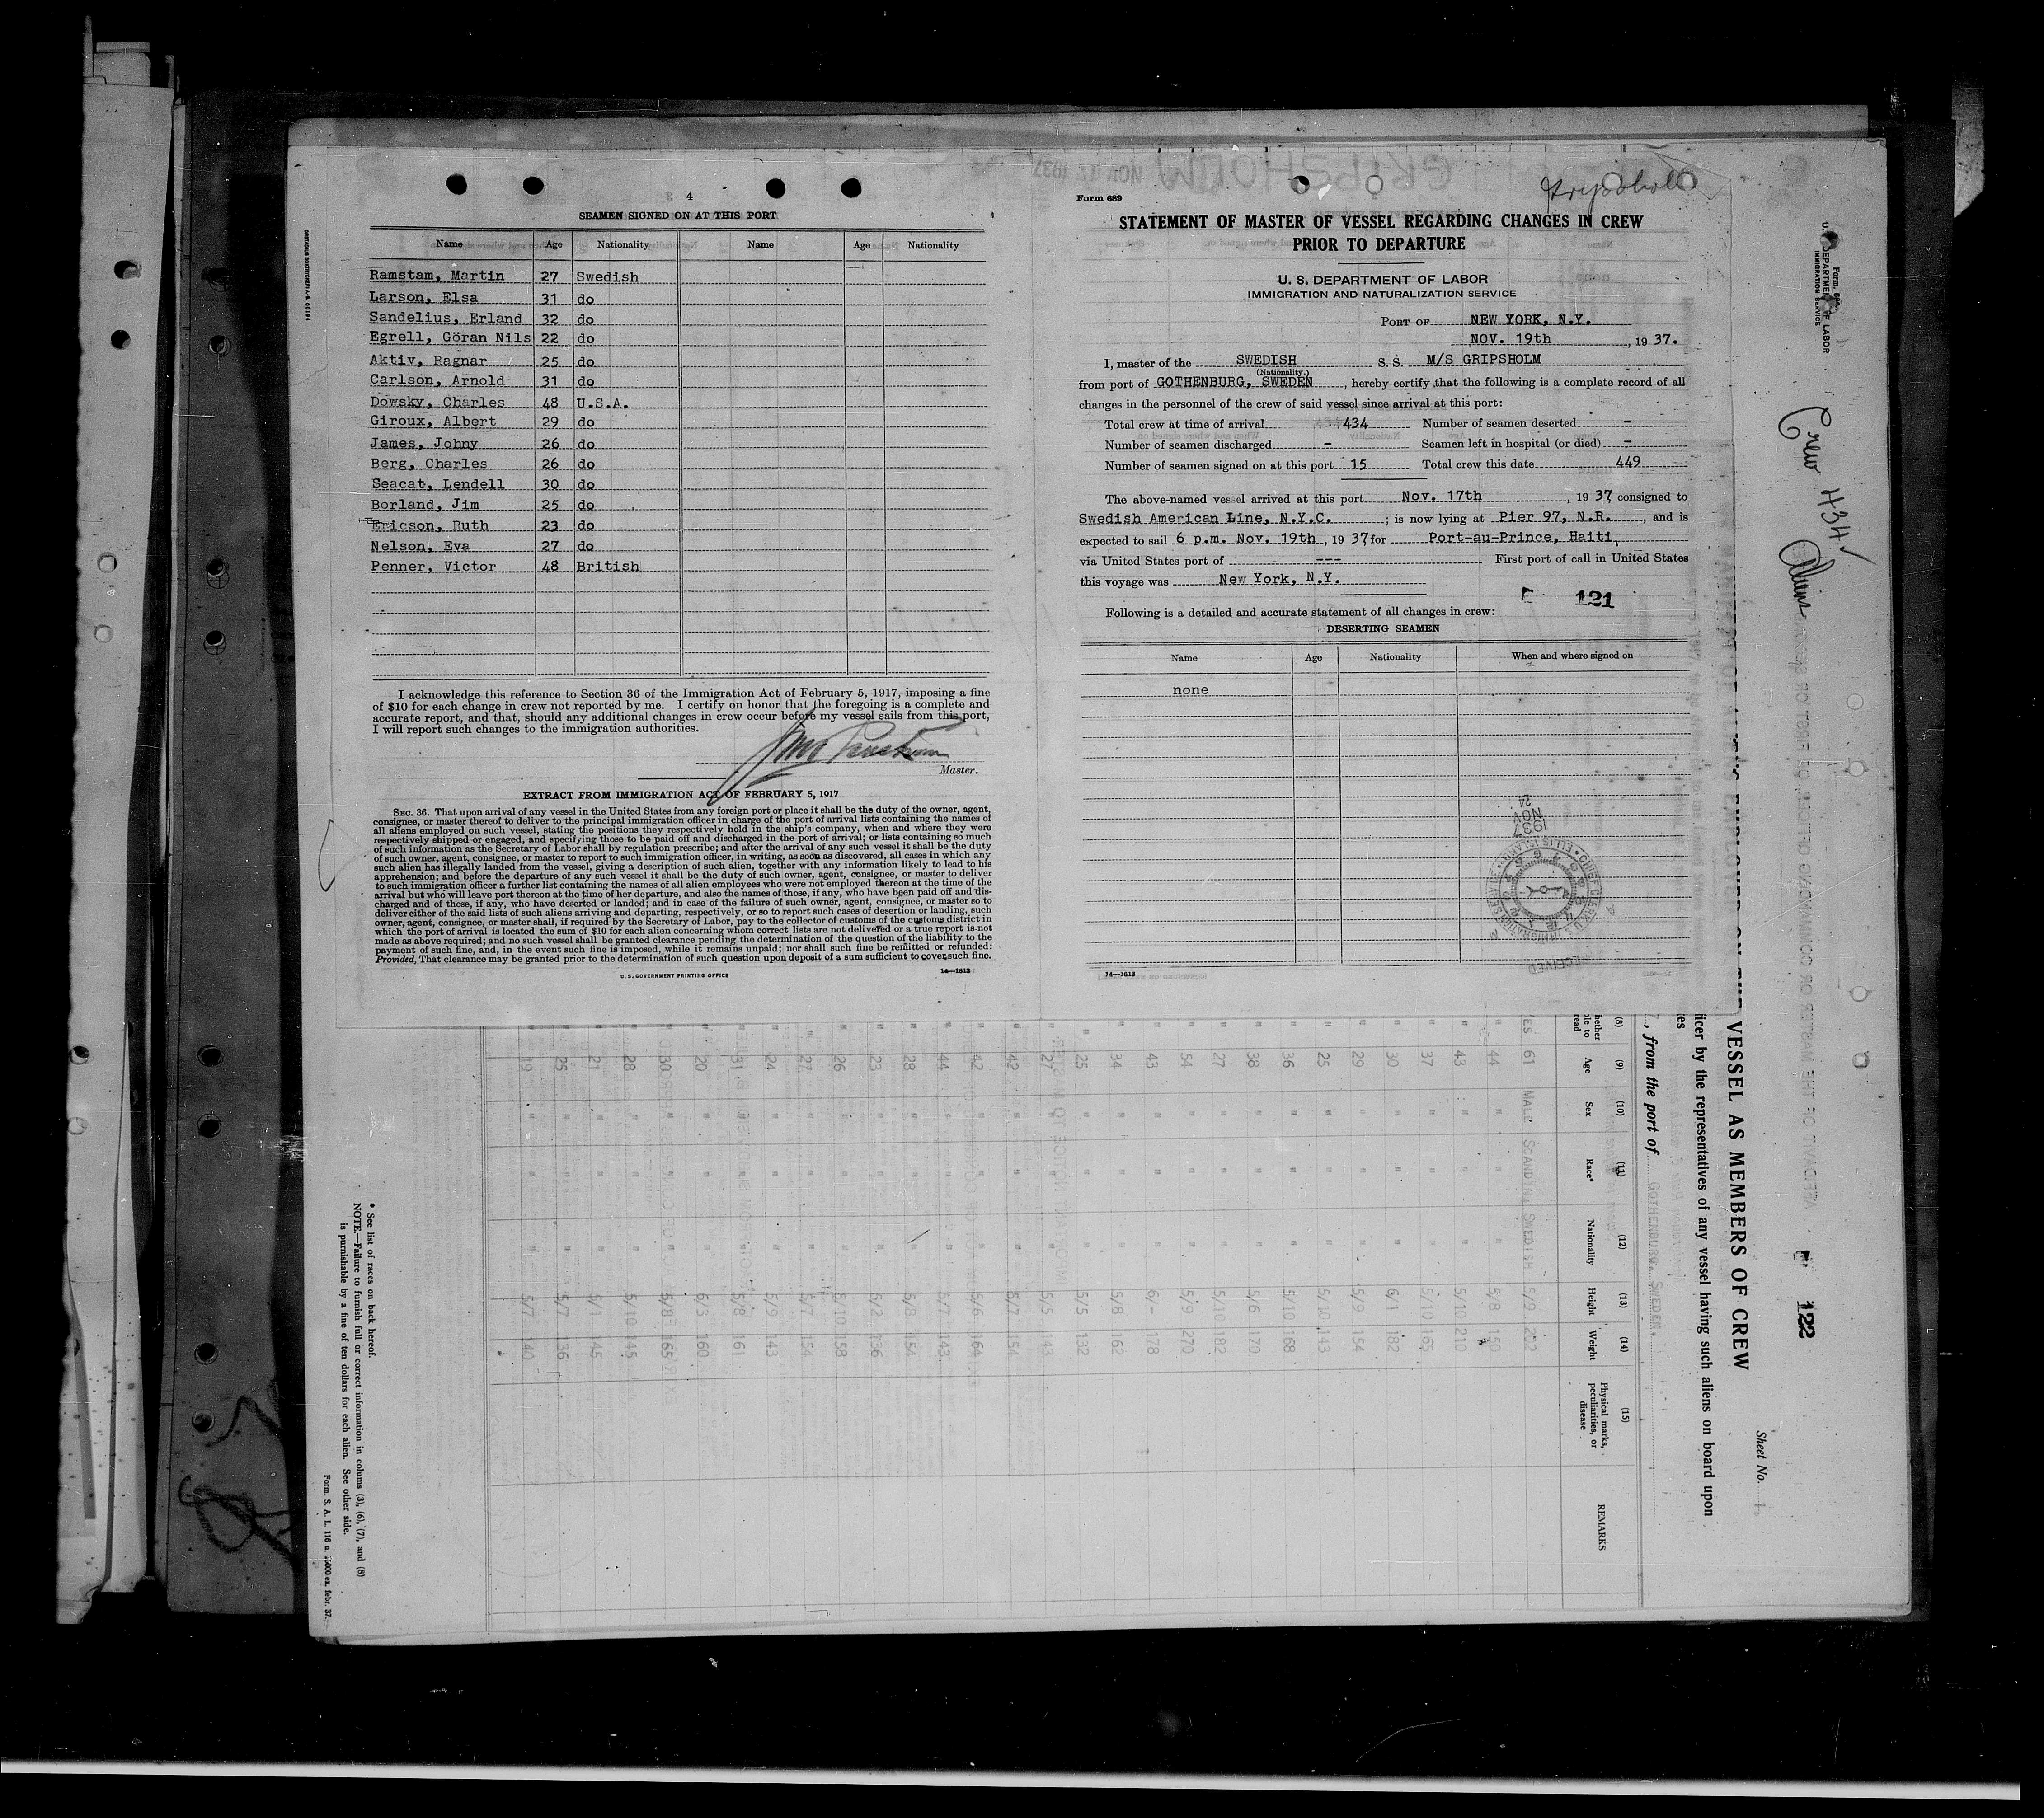 4
SEAMEN SIGNED ON AT THIS PORT
Name Age Nationality Name Age Nationality
Ramstam, Martin 27 Swedish
Larson, Elsa 31 do
Sandelius, Erland 32 do
Egrell, Göran Nils 22 do
Aktiv, Ragnar 25 do
Carlson, Arnold 31 do
Dowsky, Charles 48 U.S.A.
Giroux, Albert 29 do
James, Johny 26 do
Berg, Charles 26 do
Seacat, Lendell 30 do
Borland, Jim 25 do
Ericson, Ruth 23 do
Nelson, Eva 27 do
Penner, Victor 48 British
I acknowledge this reference to Section 36 of the Immigration Act of February 5, 1917, imposing a fine
of $10 for each change in crew not reported by me. I certify on honor that the foregoing is a complete and
accurate report, and that, should any additional changes in crew occur before my vessel sails from this port,
I will report such changes to the immigration authorities.
Master.
EXTRACT FROM IMMIGRATION ACT OF FEBRUARY 5, 1917
SEC. 36. That upon arrival of any vessel in the United States from any foreign port or place it shall be the duty of the owner, agent,
consignee, or master thereof to deliver to the principal immigration officer in charge of the port of arrival lists containing the names of
all aliens employed on such vessel, stating the positions they respectively hold in the ship's company, when and where they were
respectively shipped or engaged, and specifying those to be paid off and discharged in the port of arrival; or lists containing so much
of such information as the Secretary of Labor shall by regulation prescribe; and after the arrival of any such vessel it shall be the duty
of such owner, agent, consignee, or master to report to such immigration officer, in writing, as soon as discovered, all cases in which any
such alien has illegally landed from the vessel, giving a description of such alien, together with any information likely to lead to his
apprehension; and before the departure of any such vessel it shall be the duty of such owner, agent, consignee, or master to deliver
to such immigration officer a further list containing the names of all alien employees who were not employed thereon at the time of the
arrival but who will leave port thereon at the time of her departure, and also the names of those, if any, who have been paid off and dis-
charged and of those, if any, who have deserted or landed; and in case of the failure of such owner, agent, consignee, or master so to
deliver either of the said lists of such aliens arriving and departing, respectively, or so to report such cases of desertion or landing, such
owner, agent, consignee, or master shall, if required by the Secretary of Labor, pay to the collector of customs of the customs district in
which the port of arrival is located the sum of $10 for each alien concerning whom correct lists are not delivered or a true report is not
made as above required; and no such vessel shall be granted clearance pending the determination of the question of the liability to the
payment of such fine, and, in the event such fine is imposed, while it remains unpaid; nor shall such fine be remitted or refunded:
Provided, That clearance may be granted prior to the determination of such question upon deposit of a sum sufficient to cover such fine.
U. S. GOVERNMENT PRINTING OFFICE 14—1613
Form 689
Gripsholm
STATEMENT OF MASTER OF VESSEL REGARDING CHANGES IN CREW
PRIOR TO DEPARTURE
U. S. DEPARTMENT OF LABOR
IMMIGRATION AND NATURALIZATION SERVICE
PORT OF NEW YORK, N.Y.
NOV. 19th, 1937.
I, master of the SWEDISH S. S. M/S GRIPSHOLM
(Nationality.)
from port of GOTHENBURG, SWEDEN, hereby certify that the following is a complete record of all
changes in the personnel of the crew of said vessel since arrival at this port:
Total crew at time of arrival 434 Number of seamen deserted -
Number of seamen discharged - Seamen left in hospital (or died) -
Number of seamen signed on at this port 15 Total crew this date 449
The above-named vessel arrived at this port Nov. 17th, 1937 consigned to
Swedish American Line, N.Y.C.; is now lying at Pier 97, N.R., and is
expected to sail 6 p.m. Nov. 19th, 1937 for Port-au-Prince, Haiti,
via United States port of --- First port of call in United States
this voyage was New York, N.Y.
121
Following is a detailed and accurate statement of all changes in crew:
DESERTING SEAMEN
Name Age Nationality When and where signed on
none
RECEIVED
1937 NOV
CHIEF CLERK U.S. IMMIGRATION SERVICE ELLIS ISLAND
14—1613
U. S. DEPARTMENT OF LABOR
IMMIGRATION SERVICE
Crew 434
Aliens
122
Sheet No. 1
VESSEL AS MEMBERS OF CREW
by the representatives of any vessel having such aliens on board upon
, from the port of GOTHENBURG, SWEDEN.
(8) (9) (10) (11) (12) (13) (14) (15)
read Age Sex Race* Nationality Height Weight Physical marks, peculiarities, or disease REMARKS
61 MALE SCANDIN. SWEDISH 5/9 202
44 " " " 5/8 150
43 " " " 5/10 210
37 " " " 5/10 165
30 " " " 6/1 182
29 " " " 5/9 154
25 " " " 5/10 143
36 " " " 5/10 168
38 " " " 5/6 170
27 " " " 5/10 182
54 " " " 5/9 270
43 " " " 6/- 178
34 " " " 5/8 162
25 " " " 5/5 132
27 " " " 5/5 143
42 " " " 5/7 154
42 " " " 5/6 164
44 " " " 5/7 143
28 " " " 5/8 154
23 " " " 5/2 136
26 " " " 5/10 158
27 " " " 5/7 154
24 " " " 5/9 143
31 " " " 5/8 161
20 " " " 6/3 160
30 " " " 5/8 165
28 " " " 5/10 145
21 " " " 5/1 145
25 " " " 5/7 136
19 " " " 5/7 140
* See list of races on back hereof.
NOTE.—Failure to furnish full or correct information in colums (3), (6), (7), and (8)
is punishable by a fine of ten dollars for each alien. See other side.